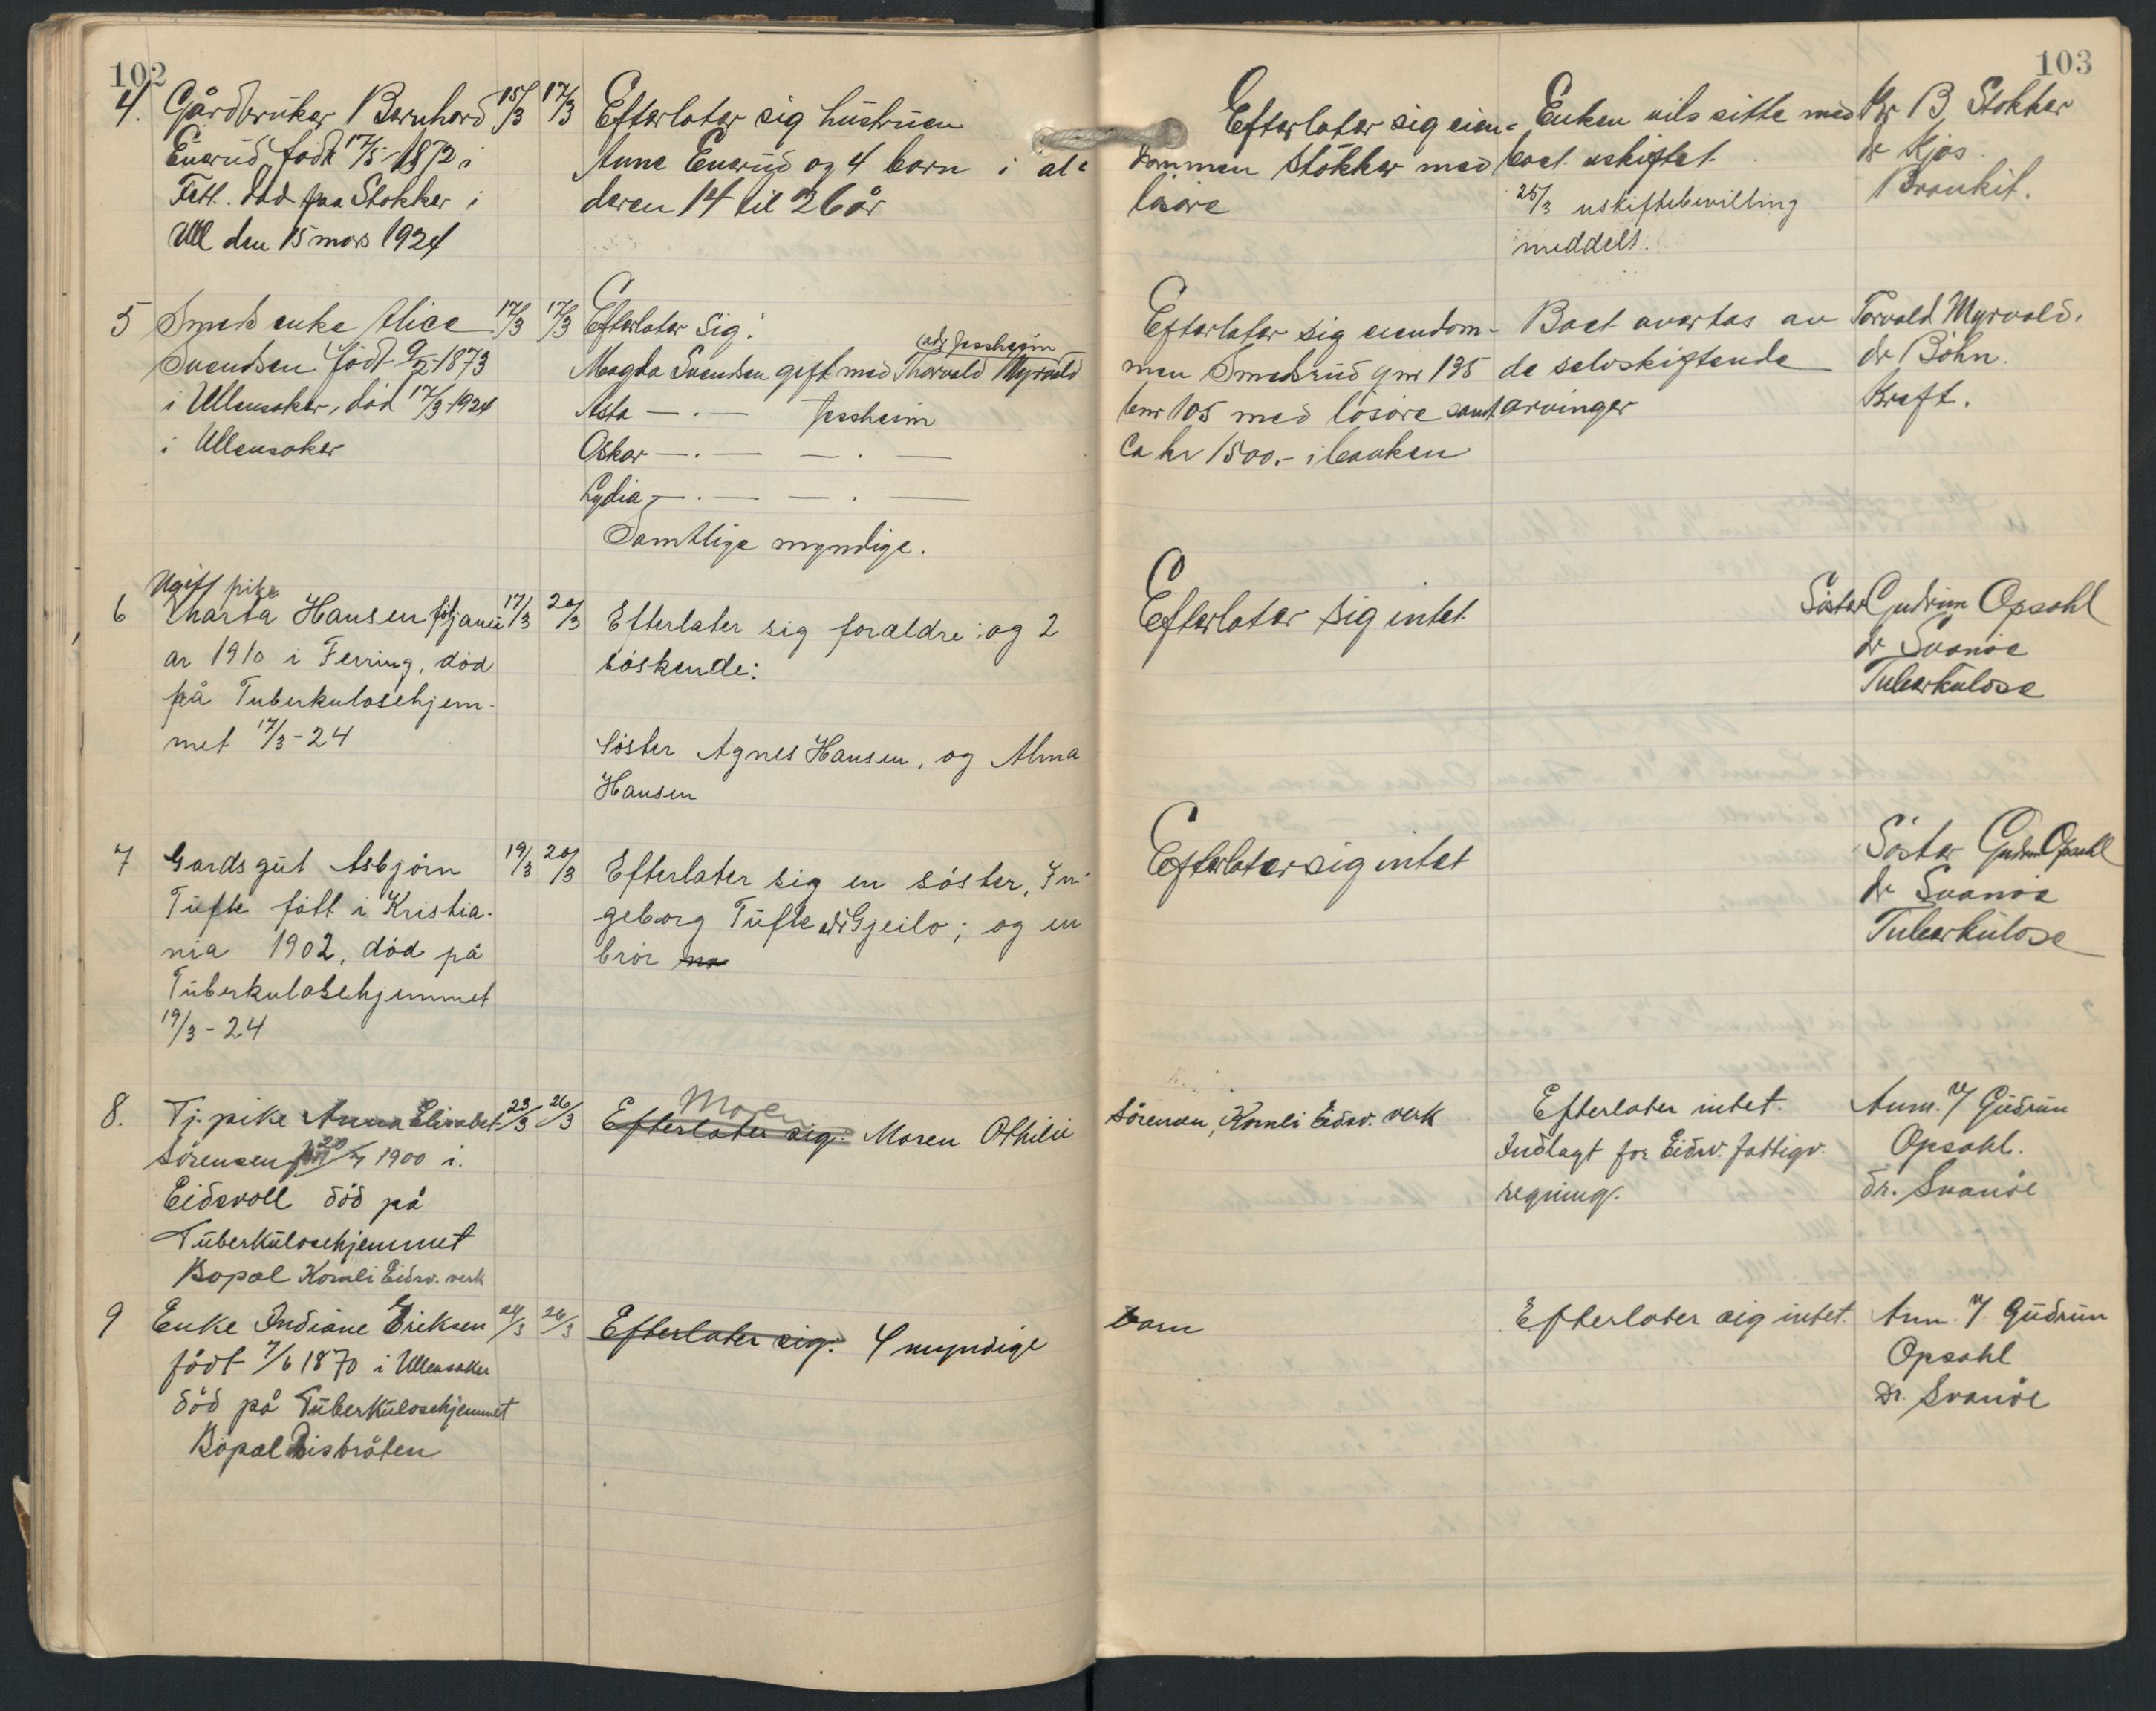 102
4. Gårdbruker Bernhard 15/3 17/3 Efterlater sig hustruen
Enerud født 17/5-1872 i Anne Enerud og 4 barn i al-
Fett. død paa Stokker i deren 14 til 26 år
Ull den 15 mars 1924
5 Smeds enke Alice 17/3 17/3 Efterlater sig:
Svendsen født 9/2-1873 Magda Svendsen gift med Thorvald Myrvold
adr Jessheim
i Ullensaker, død 17/3-1924 Asta —·— Jessheim
i Ullensaker Oskar —·— —·—
Lydia —·— —·—
Samtlige myndige.
Ugift pike
6 Marta Hansen føt janu 17/3 20/3 Efterlater sig foraldre: og 2
ar 1910 i Ferring, död söskende:
på Tuberkulosehjem-
met 17/3-24 Söster Agnes Hansen, og Alma
Hansen
7 Gardsgut Asbjörn 19/3 20/3 Efterlater sig en söster, In-
Tufte fött i Kristia- geborg Tufte adr Gjeilo; og en
nia 1902, död på bror
Tuberkulosehjemmet
19/3-24
8. Tj. pike Anna Elisabet 23/3 26/3 Efterlater sig: Moren Maren Othilie
Sörensen född 20/7 1900 i
Eidsvoll död på
Tuberkulosehjemmet
Bopæl Komli Eidsv. verk
9 Enke Indiane Eriksen 24/3 26/3 Efterlater sig: 4 myndige
född 7/6 1870 i Ullensaker
död på Tuberkulosehjemmet
Bopæl Risbråten
103
Efterlater sig eien- Enken vils sitte med Br B. Stokker
dommen Stokker med boet uskiftet dr Kjos
løsøre 25/3 uskiftebevilling Bronkit.
meddelt.
Efterlater sig eiendom- Boet overtas av Torvald Myrvold.
men Smedsrud gnr 135 de selvskiftende dr Böhn.
bnr 105 med lösöre samt arvinger Kreft.
Ca kr 1500.- i banken
Efterlater sig intet Söster Gudrun Opsahl
dr Svanöe
Tuberkulose
Efterlater sig intet Söster Gudrun Opsahl
dr Svanöe
Tuberkulose
Sörensen, Komli Eidsv. verk Efterlater intet. Anm. v/ Gudrun
Indlagt for Eidsv. fattigv. Opsahl.
regning. dr. Svanöe
barn Efterlater sig intet. Anm. v/ Gudrun
Opsahl
Dr. Svanöe